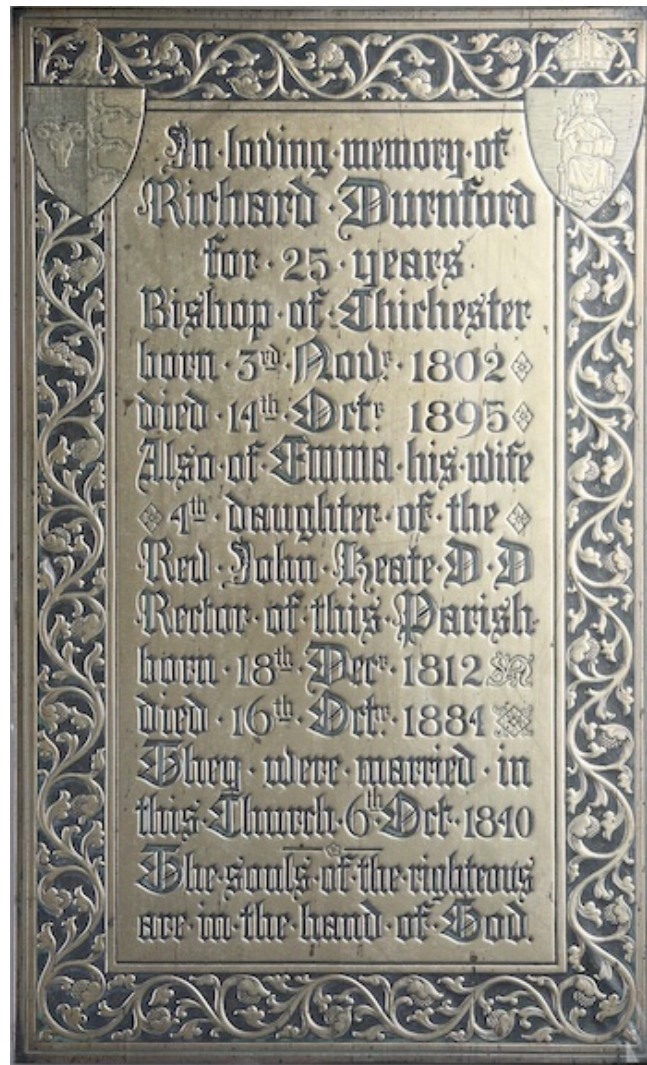 In·loving·memory·of
Richard·Durnford
for·25·years
Bishop·of·Chichester
born·3rd·Novr·1802
died·14th·Octr·1895
Also·of·Emma·his·wife
4th·daughter·of·the
Revd·John·Keate·D·D
Rector·of·this·Parish
born·18th·Decr·1812
died·16th·Octr·1884
They·were·married·in
this·Church·6th·Oct·1840
The·souls·of·the·righteous
are·in·the·hand·of·God.